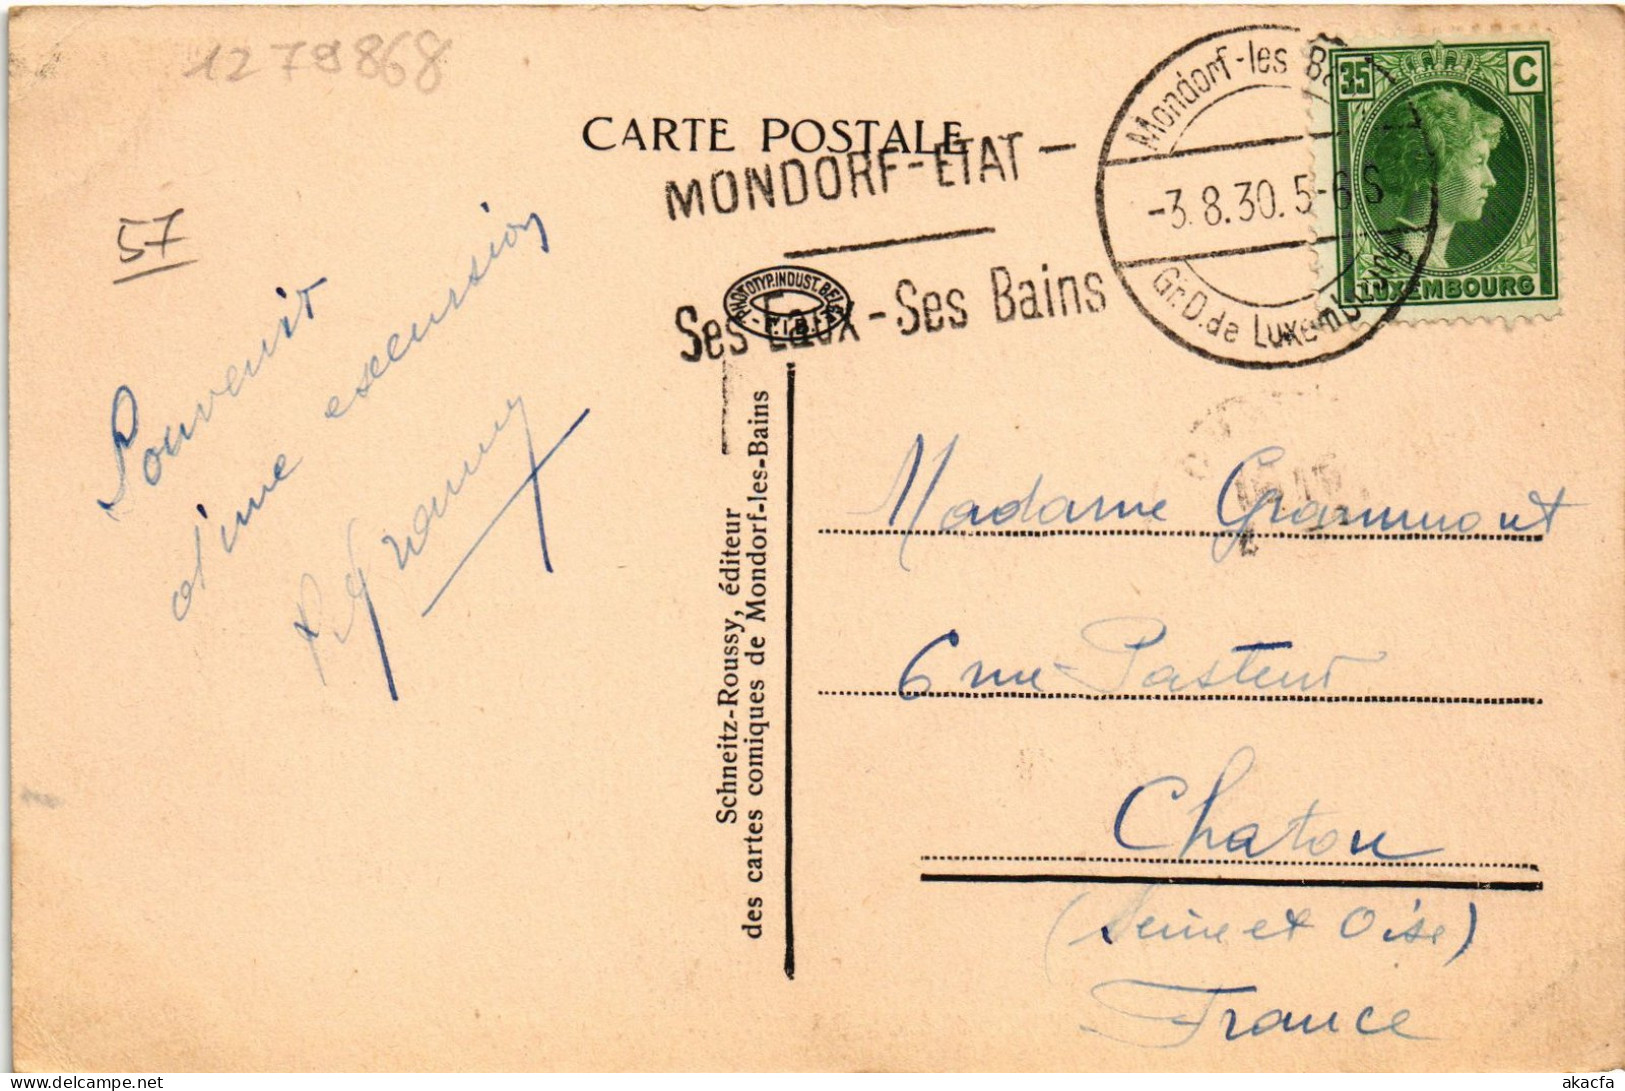 1279868
CARTE POSTALE
MONDORF-ETAT -
Ses Eaux - Ses Bains
Mondorf-les
-3.8.30. 5-6 S
Gr. D. de Luxembourg
35 C
LUXEMBOURG
PHOTOTYP. INDUST. BELGE
P.I.B.
57
Souvenir
d'une excursion
Schneitz-Roussy, éditeur
des cartes comiques de Mondorf-les-Bains
Madame Grammont
6 rue Pasteur
Chatou
(Seine et Oise)
France
akacfa